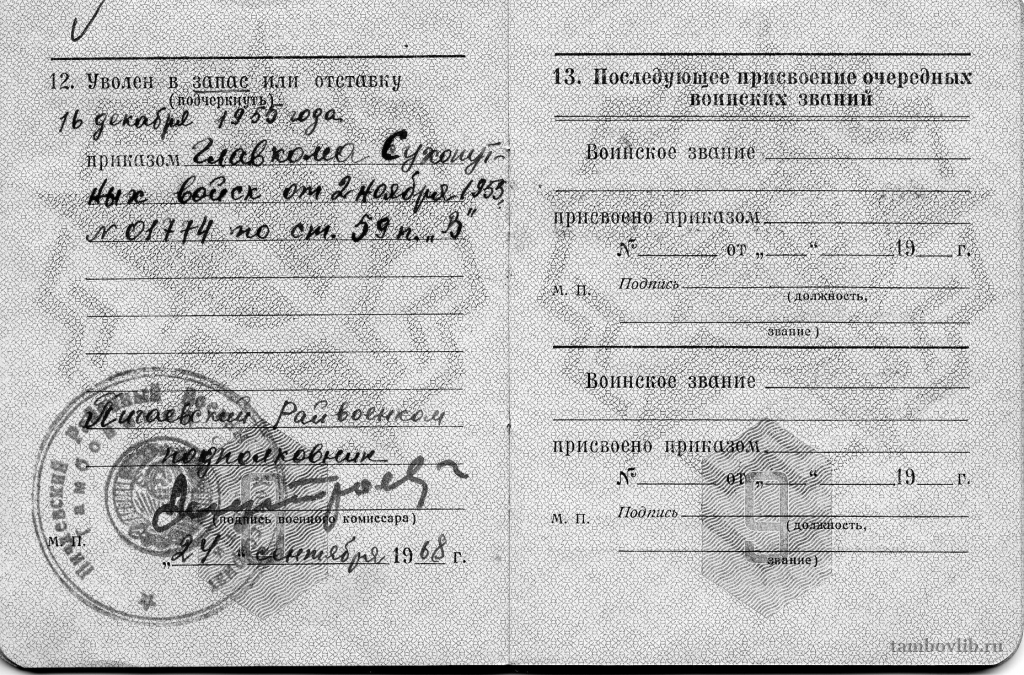 12. Уволен в запас или отставку
(подчеркнуть)
16 декабря 1955 года.
приказом Главкома Сухопут-
ных войск от 2 ноября 1955,
№ 01774 по ст. 59 п. „В"
Пичаевский Райвоенком
подполковник
(подпись военного комиссара)
М. П.
„24" сентября 1968 г.
13. Последующее присвоение очередных
воинских званий
Воинское звание
присвоено приказом
№ от „ “ 19 г.
М. П. Подпись
(должность,
звание)
Воинское звание
присвоено приказом
№ от „ “ 19 г.
М. П. Подпись
(должность,
звание)
tambovlib.ru